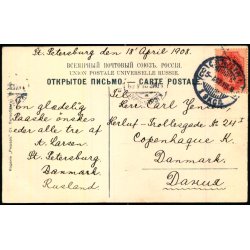 St. Petersburg den 18 April 1908.
ВСЕМІРНЫЙ ПОЧТОВЫЙ СОЮЗЪ. РОССІЯ.
UNION POSTALE UNIVERSELLE RUSSIE.
ОТКРЫТОЕ ПИСЬМО. — CARTE POSTALE.
Til
En glædelig
Paaske önskes
eder alle tre af
A. Larsen
St. Petersburg
Danmark
Rusland
Herr Carl Jensen
Herluf-Trollesgade № 24
Copenhague K
Danmark.
Dania